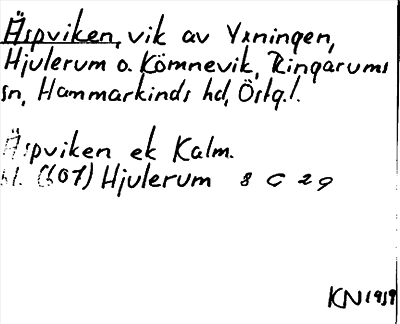 Äspviken, vik av Yxningen,
Hjulerum o. Kömnevik, Ringarums
sn, Hammarkinds hd, Östg.l.
Äspviken ek Kalm.
bl. (607) Hjulerum 8 G 2 g
KN 1939